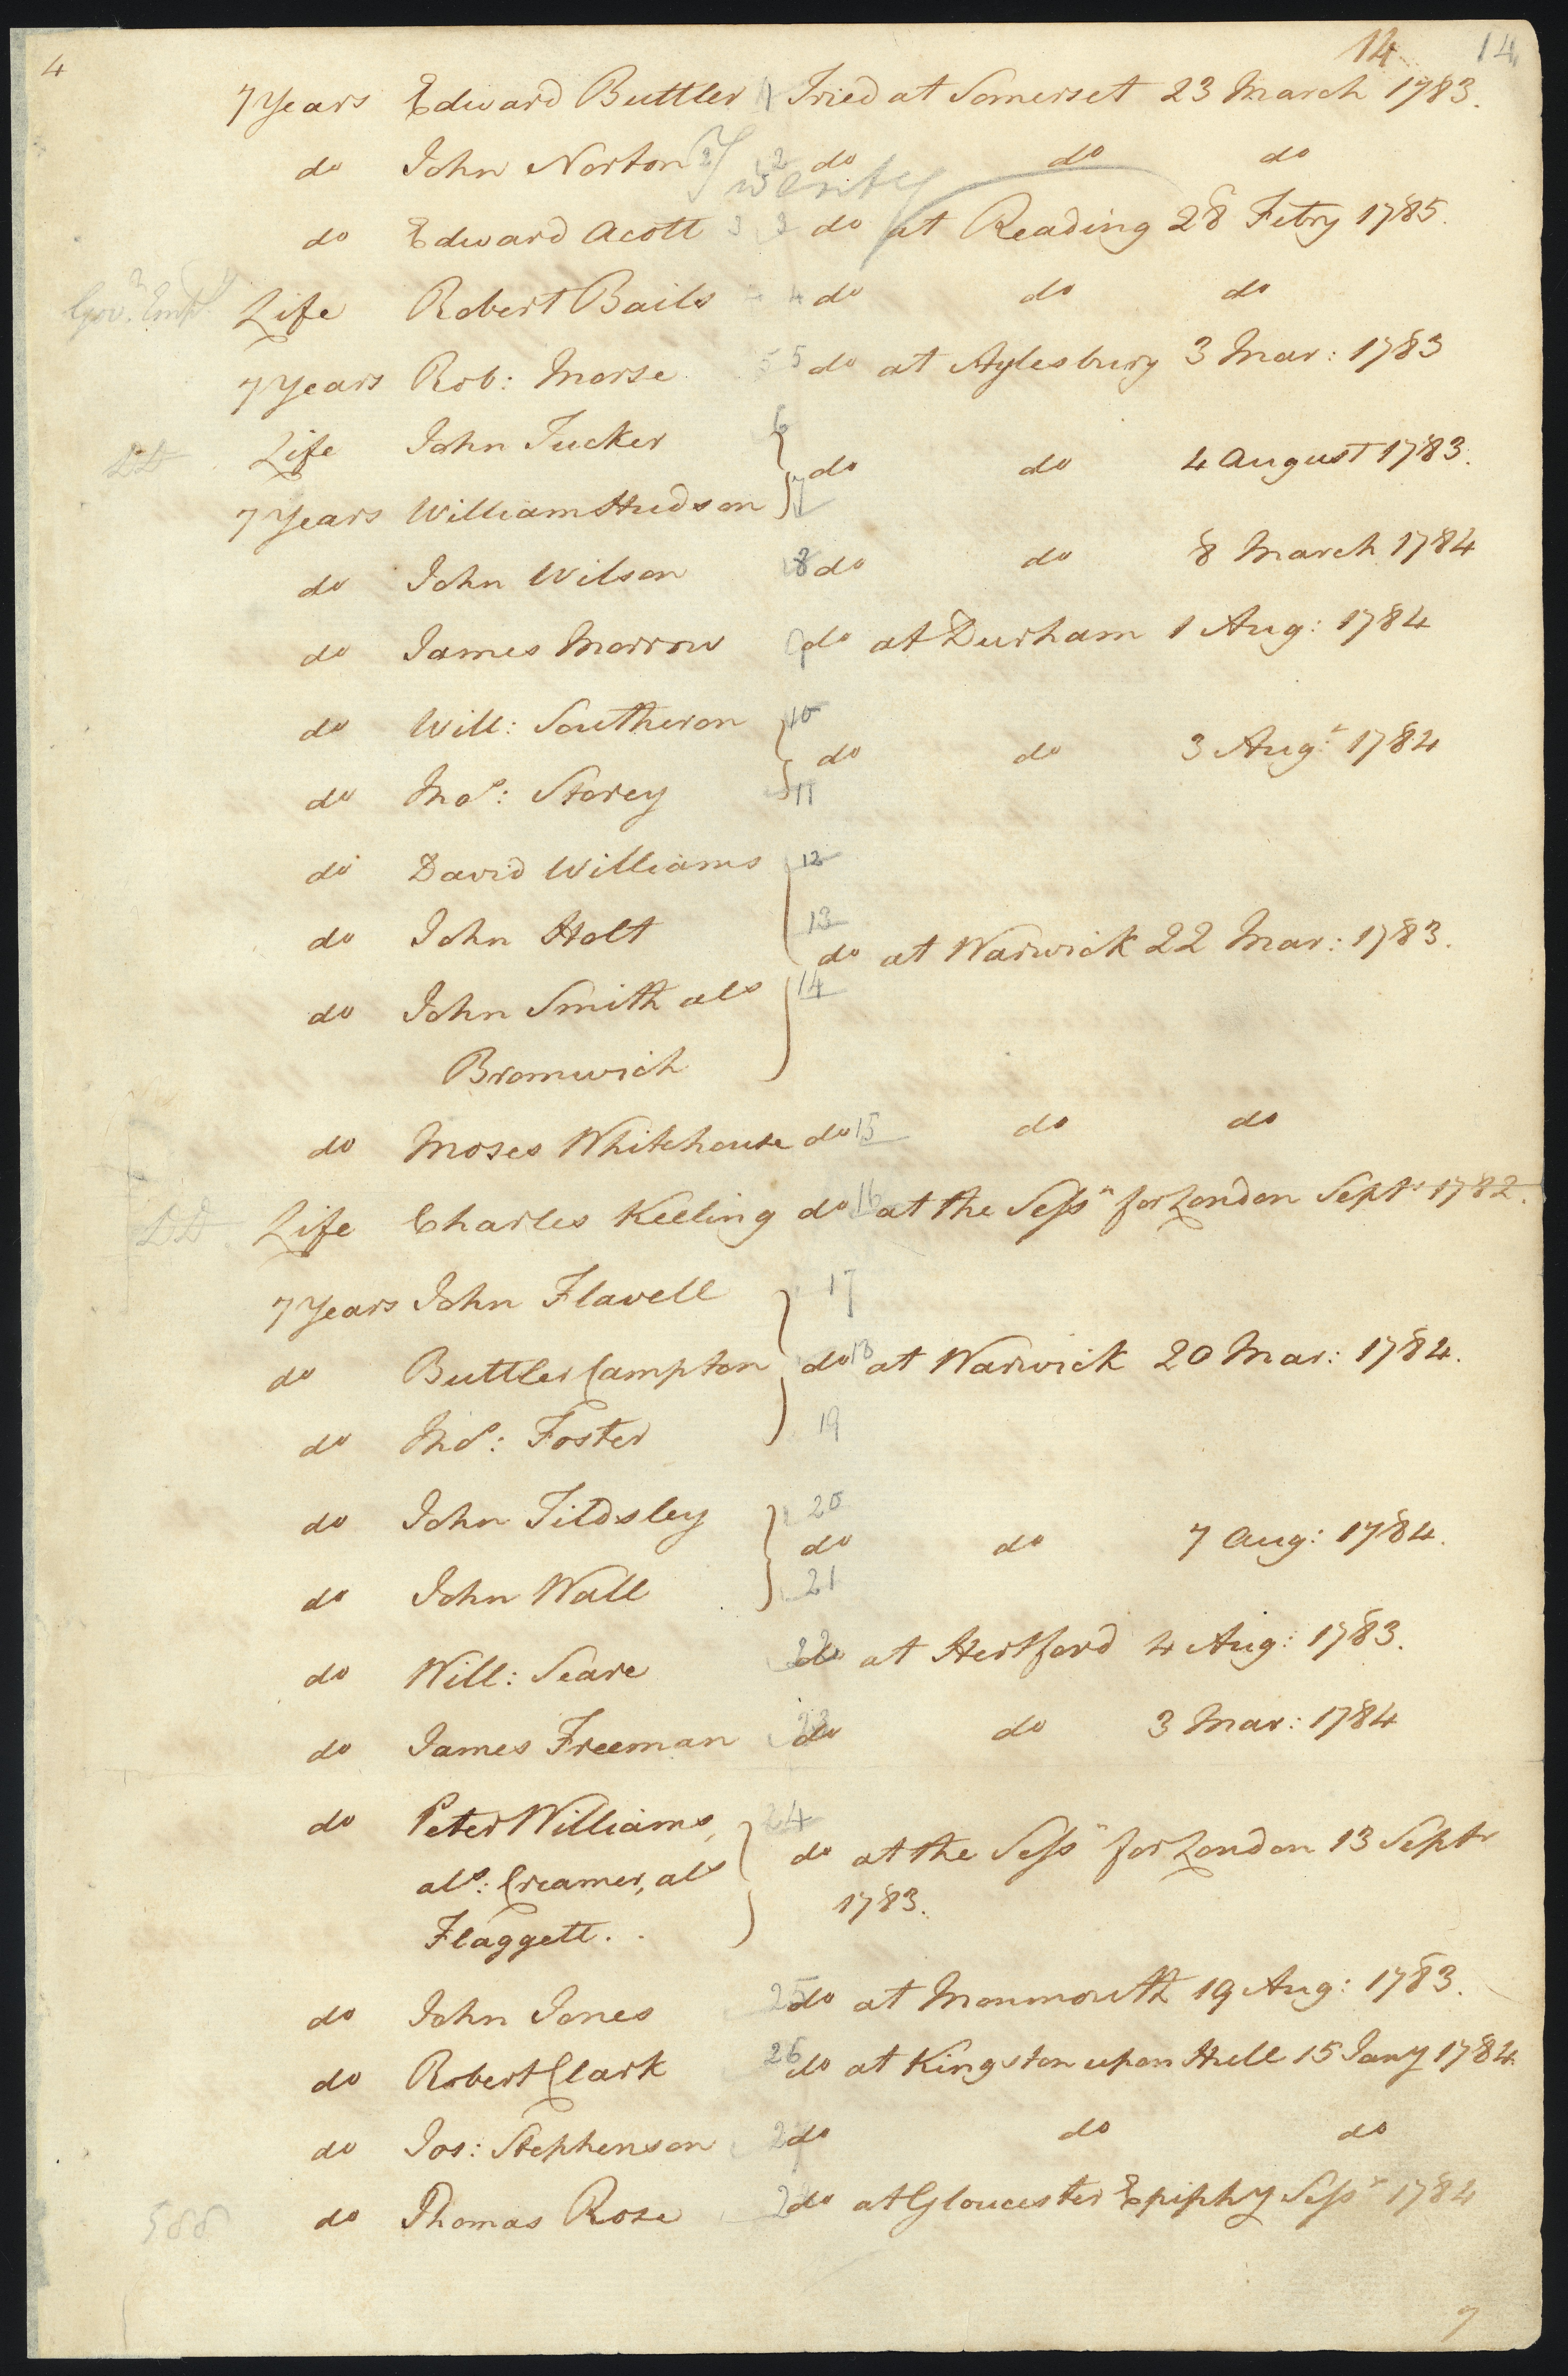 4 14 14
7 Years Edward Buttler 1 Tried at Somerset 23 March 1783.
do John Norton 2 do do do
Twenty
do Edward Acott 3 3 do at Reading 28 Febry 1785.
Govr. Life Robert Bails 4 do do do
7 Years Rob: Morse 5 5 do at Aylesbury 3 Mar: 1783
Life John Tucker 6
DD do do 4 August 1783.
7 Years William Hudson 7
do John Wilson 8 do do 8 March 1784
do James Morrow 9 do at Durham 1 Aug: 1784
do Will: Southeron 10
do do 3 Augt: 1784
do Thos: Storey 11
do David Williams 12
do John Holt 13
do at Warwick 22 Mar: 1783.
do John Smith als 14
Bromwich
do Moses Whitehouse do 15 do do
DD Life Charles Keeling do 16 at the Sessn for London Septr 1782.
7 Years John Flavell 17
do Buttler Campton do 18 at Warwick 20 Mar: 1784.
do Thos: Foster 19
do John Tildsley 20
do do 7 Aug: 1784.
do John Wall 21
do Will: Seare 22 do at Hertford 4 Aug: 1783.
do James Freeman 23 do do 3 Mar: 1784
do Peter Williams, 24
als: Creamer, als do at the Sessn for London 13 Septr
Flaggett. 1783.
do John Jones 25 do at Monmouth 19 Aug: 1783.
do Robert Clark 26 do at Kingston upon Hull 15 Jany 1784
do Jos: Stephenson 27 do do do
do Thomas Rose 28 do at Gloucester Epiphy Sessn 1784
588
7